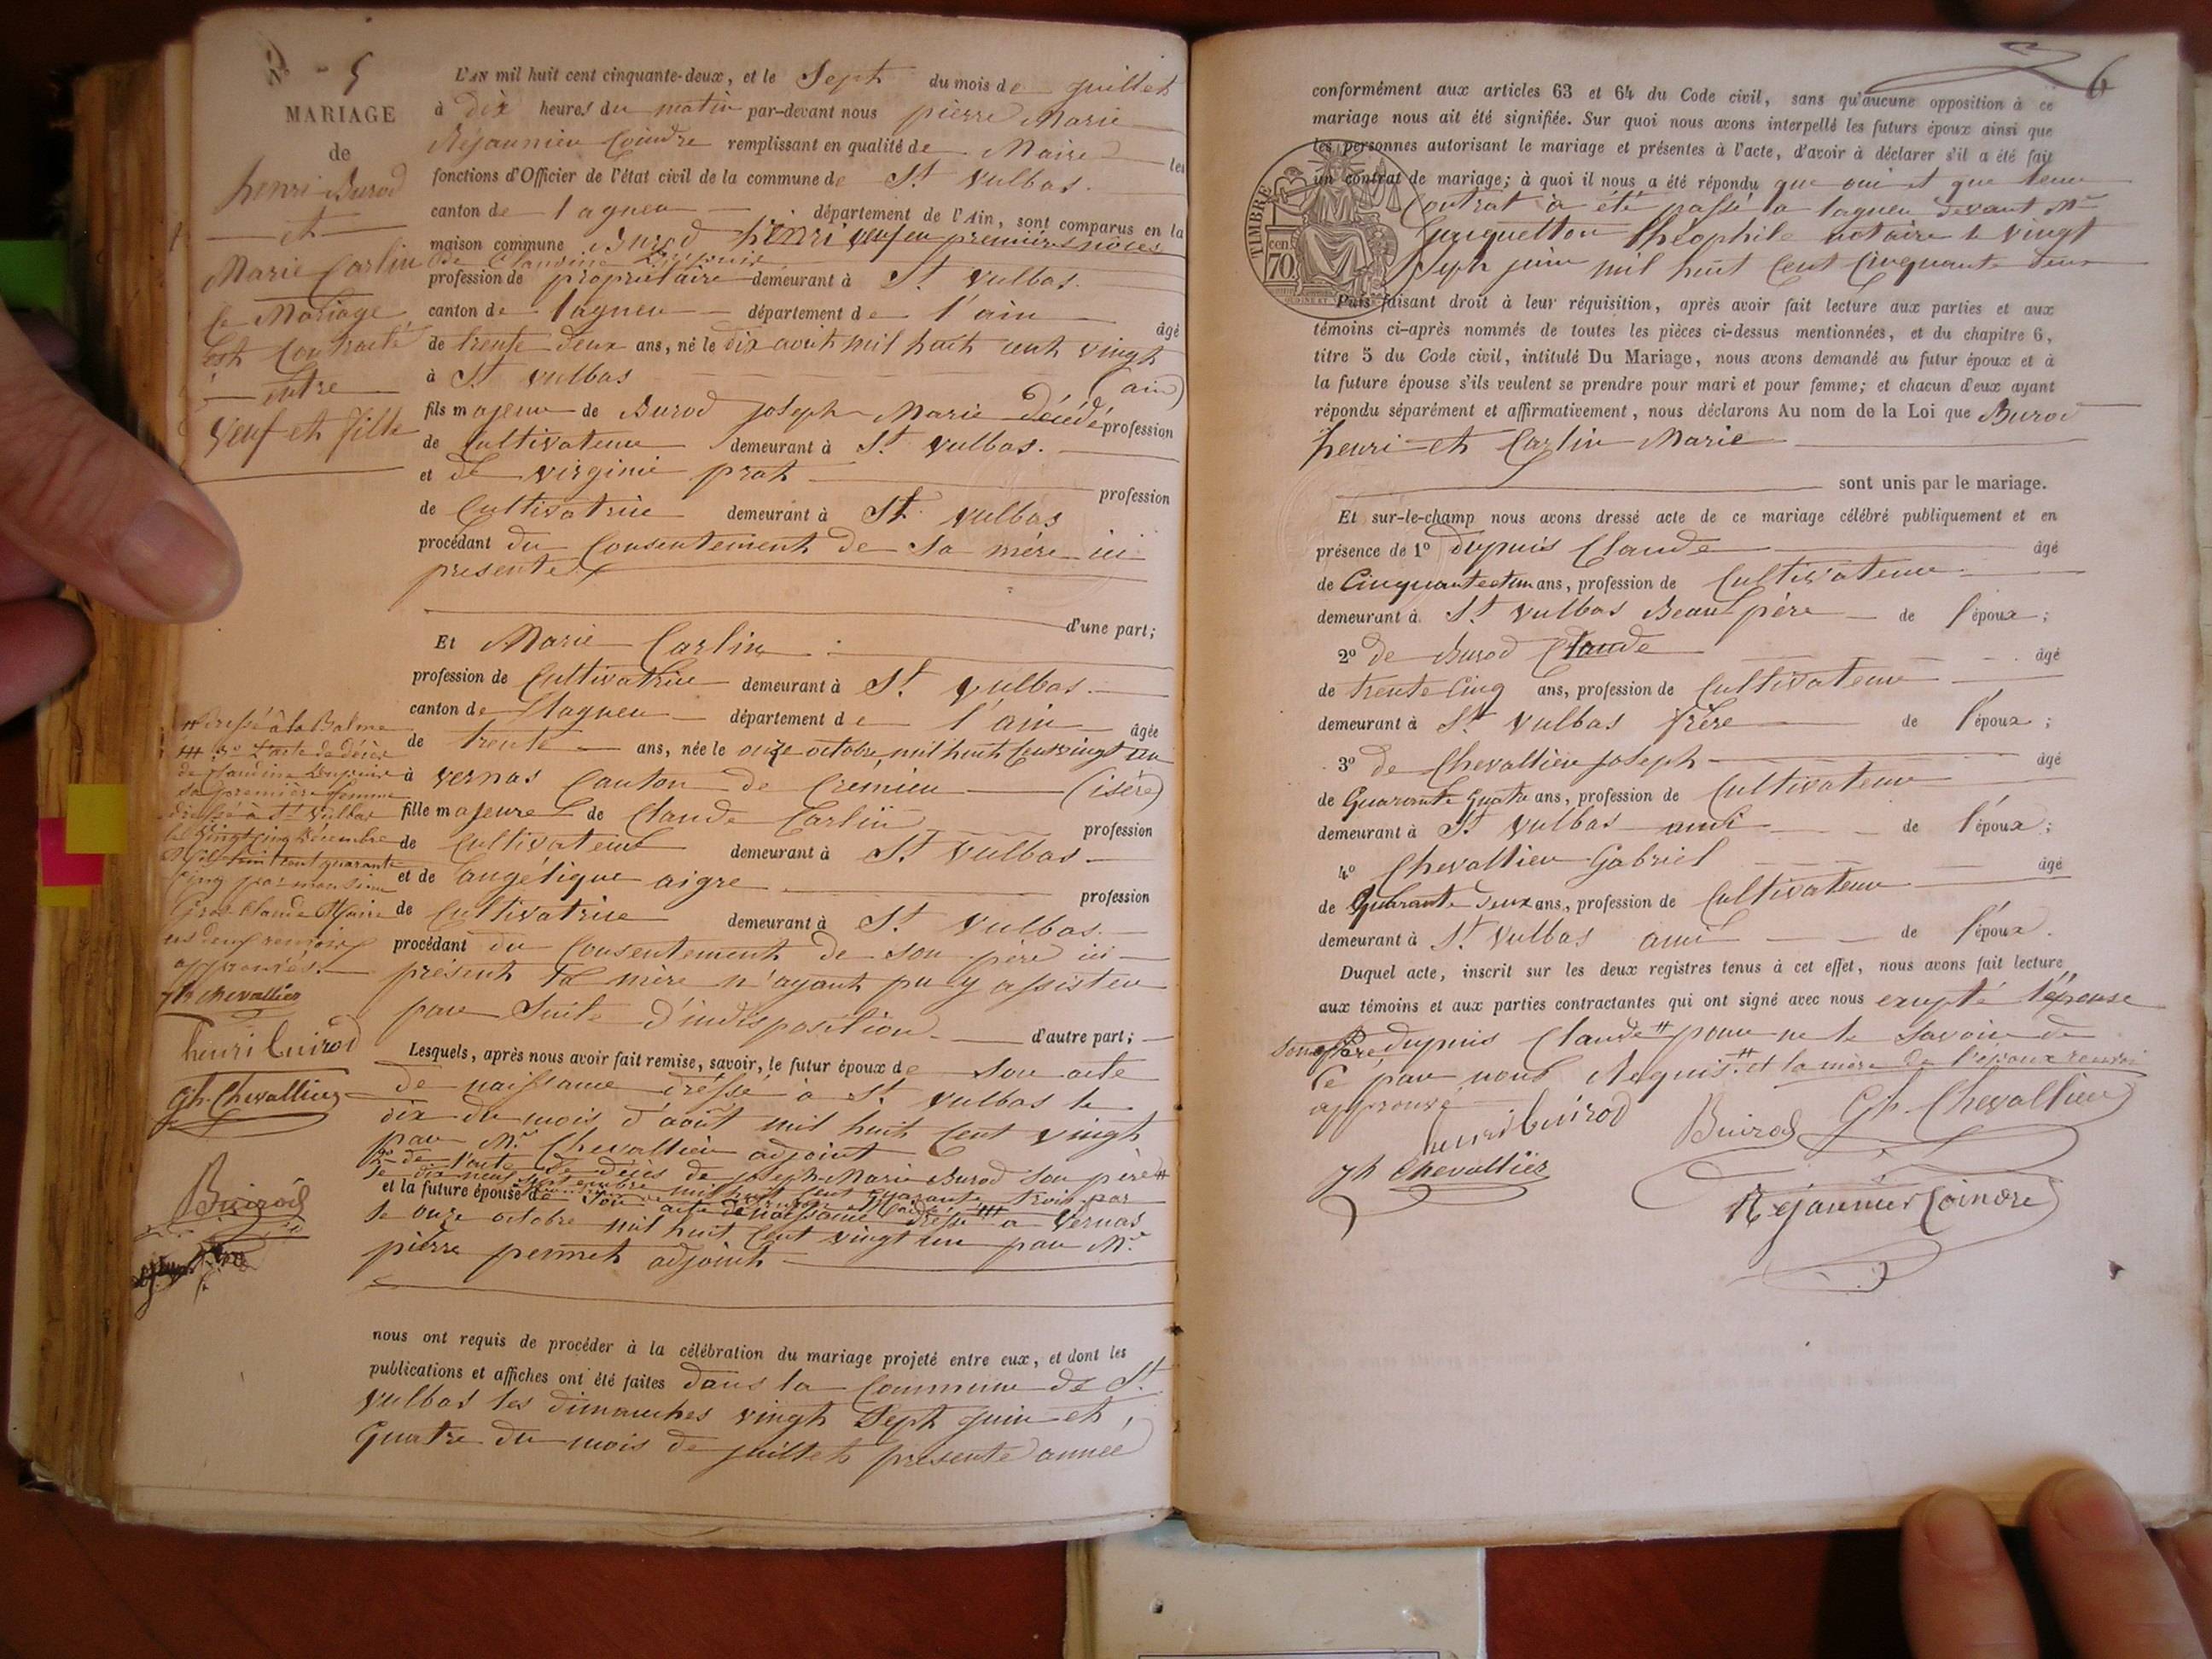 N° - 5
MARIAGE
de
henri Burod
et
Marie Carlin
le Mariage
est Contracté
entre
Veuf et fille
L'AN mil huit cent cinquante-deux, et le Sept du mois de juillet
à dix heures du matin par-devant nous pierre Marie
Réjaunier Coindre remplissant en qualité de Maire les
fonctions d'Officier de l'état civil de la commune de St. Vulbas.
canton de lagneu département de l'Ain, sont comparus en la
maison commune Burod henri veuf en premières noces
de Claudine Dupuis
profession de propriétaire demeurant à St. Vulbas.
canton de lagneu département de l'ain âgé
de trente deux ans, né le dix août mil huit cent vingt
à St Vulbas (ain)
fils majeur de Burod joseph Marie décédé profession
de Cultivateur demeurant à St. Vulbas.
et de virginie prat profession
de Cultivatrice demeurant à St. Vulbas
procédant du Consentement de Sa mère ici
presente.
d'une part;
Et Marie Carlin
profession de Cultivatrice demeurant à St. Vulbas.
canton de lagneu département de l'ain âgée
de trente ans, née le onze octobre, mil huit Cent vingt un
à vernas Canton de Cremieu (isère)
fille majeure de Claude Carlin profession
de Cultivateur demeurant à St Vulbas
et de angélique aigre profession
de Cultivatrice demeurant à St. Vulbas.
procédant du Consentement de son père ici
présent la mère n'ayant pu y assister
par Suite d'indisposition d'autre part;
Lesquels, après nous avoir fait remise, savoir, le futur époux de Son acte
de naissance dressé à St. Vulbas le
dix du mois d'août mil huit Cent vingt
par Mr. Chevallier adjoint
2° de l'acte de décès de joseph Marie Burod Son père #
le dix neuf Septembre mil huit Cent quarante trois par
et la future épouse de Son acte de naissance dressé à Vernas
le onze octobre mil huit Cent vingt un par Mr.
pierre permet adjoint
nous ont requis de procéder à la célébration du mariage projeté entre eux, et dont les
publications et affiches ont été faites dans la Commune de St.
Vulbas les dimanches vingt Sept juin et
Quatre du mois de juillet présente année
# dressé à la Balme
### 3° l'acte de décès
de Claudine Dupuis
sa première femme
dressé à St Vulbas
le vingt cinq décembre
Mil huit cent quarante
cinq par monsieur
Gros Claude Maire
les deux renvois
approuvés.
jh chevallier
henri buirod
Gh. Chevallier
Buirod
6
conformément aux articles 63 et 64 du Code civil, sans qu'aucune opposition à ce
mariage nous ait été signifiée. Sur quoi nous avons interpellé les futurs époux ainsi que
les personnes autorisant le mariage et présentes à l'acte, d'avoir à déclarer s'il a été fait
un contrat de mariage; à quoi il nous a été répondu que oui et que leur
Contrat a été passé a lagneu devant Mr
théophile notaire le vingt
Sept juin mil huit Cent Cinquante deux
TIMBRE
70 cen.
Puis faisant droit à leur réquisition, après avoir fait lecture aux parties et aux
témoins ci-après nommés de toutes les pièces ci-dessus mentionnées, et du chapitre 6,
titre 5 du Code civil, intitulé Du Mariage, nous avons demandé au futur époux et à
la future épouse s'ils veulent se prendre pour mari et pour femme; et chacun d'eux ayant
répondu séparément et affirmativement, nous déclarons Au nom de la Loi que Burod
henri et Carlin Marie
sont unis par le mariage.
Et sur-le-champ nous avons dressé acte de ce mariage célébré publiquement et en
présence de 1° dupuis Claude âgé
de Cinquante et un ans, profession de Cultivateur
demeurant à St Vulbas Beau père de l'époux;
2° de Burod Claude âgé
de trente Cinq ans, profession de Cultivateur
demeurant à St Vulbas frère de l'époux;
3° de Chevallier joseph âgé
de Quarante Quatre ans, profession de Cultivateur
demeurant à St Vulbas ami de l'époux;
4° Chevallier Gabriel âgé
de Quarante deux ans, profession de Cultivateur
demeurant à St. Vulbas ami de l'époux.
Duquel acte, inscrit sur les deux registres tenus à cet effet, nous avons fait lecture
aux témoins et aux parties contractantes qui ont signé avec nous excepté l'épouse
Son père, dupuis Claude # pour ne le Savoir de
Ce par nous Requis. # et la mère de l'époux renvoi
approuvé
henri buirod Buirod Gh Chevallier
jh Chevallier
Rejaunier Coindre